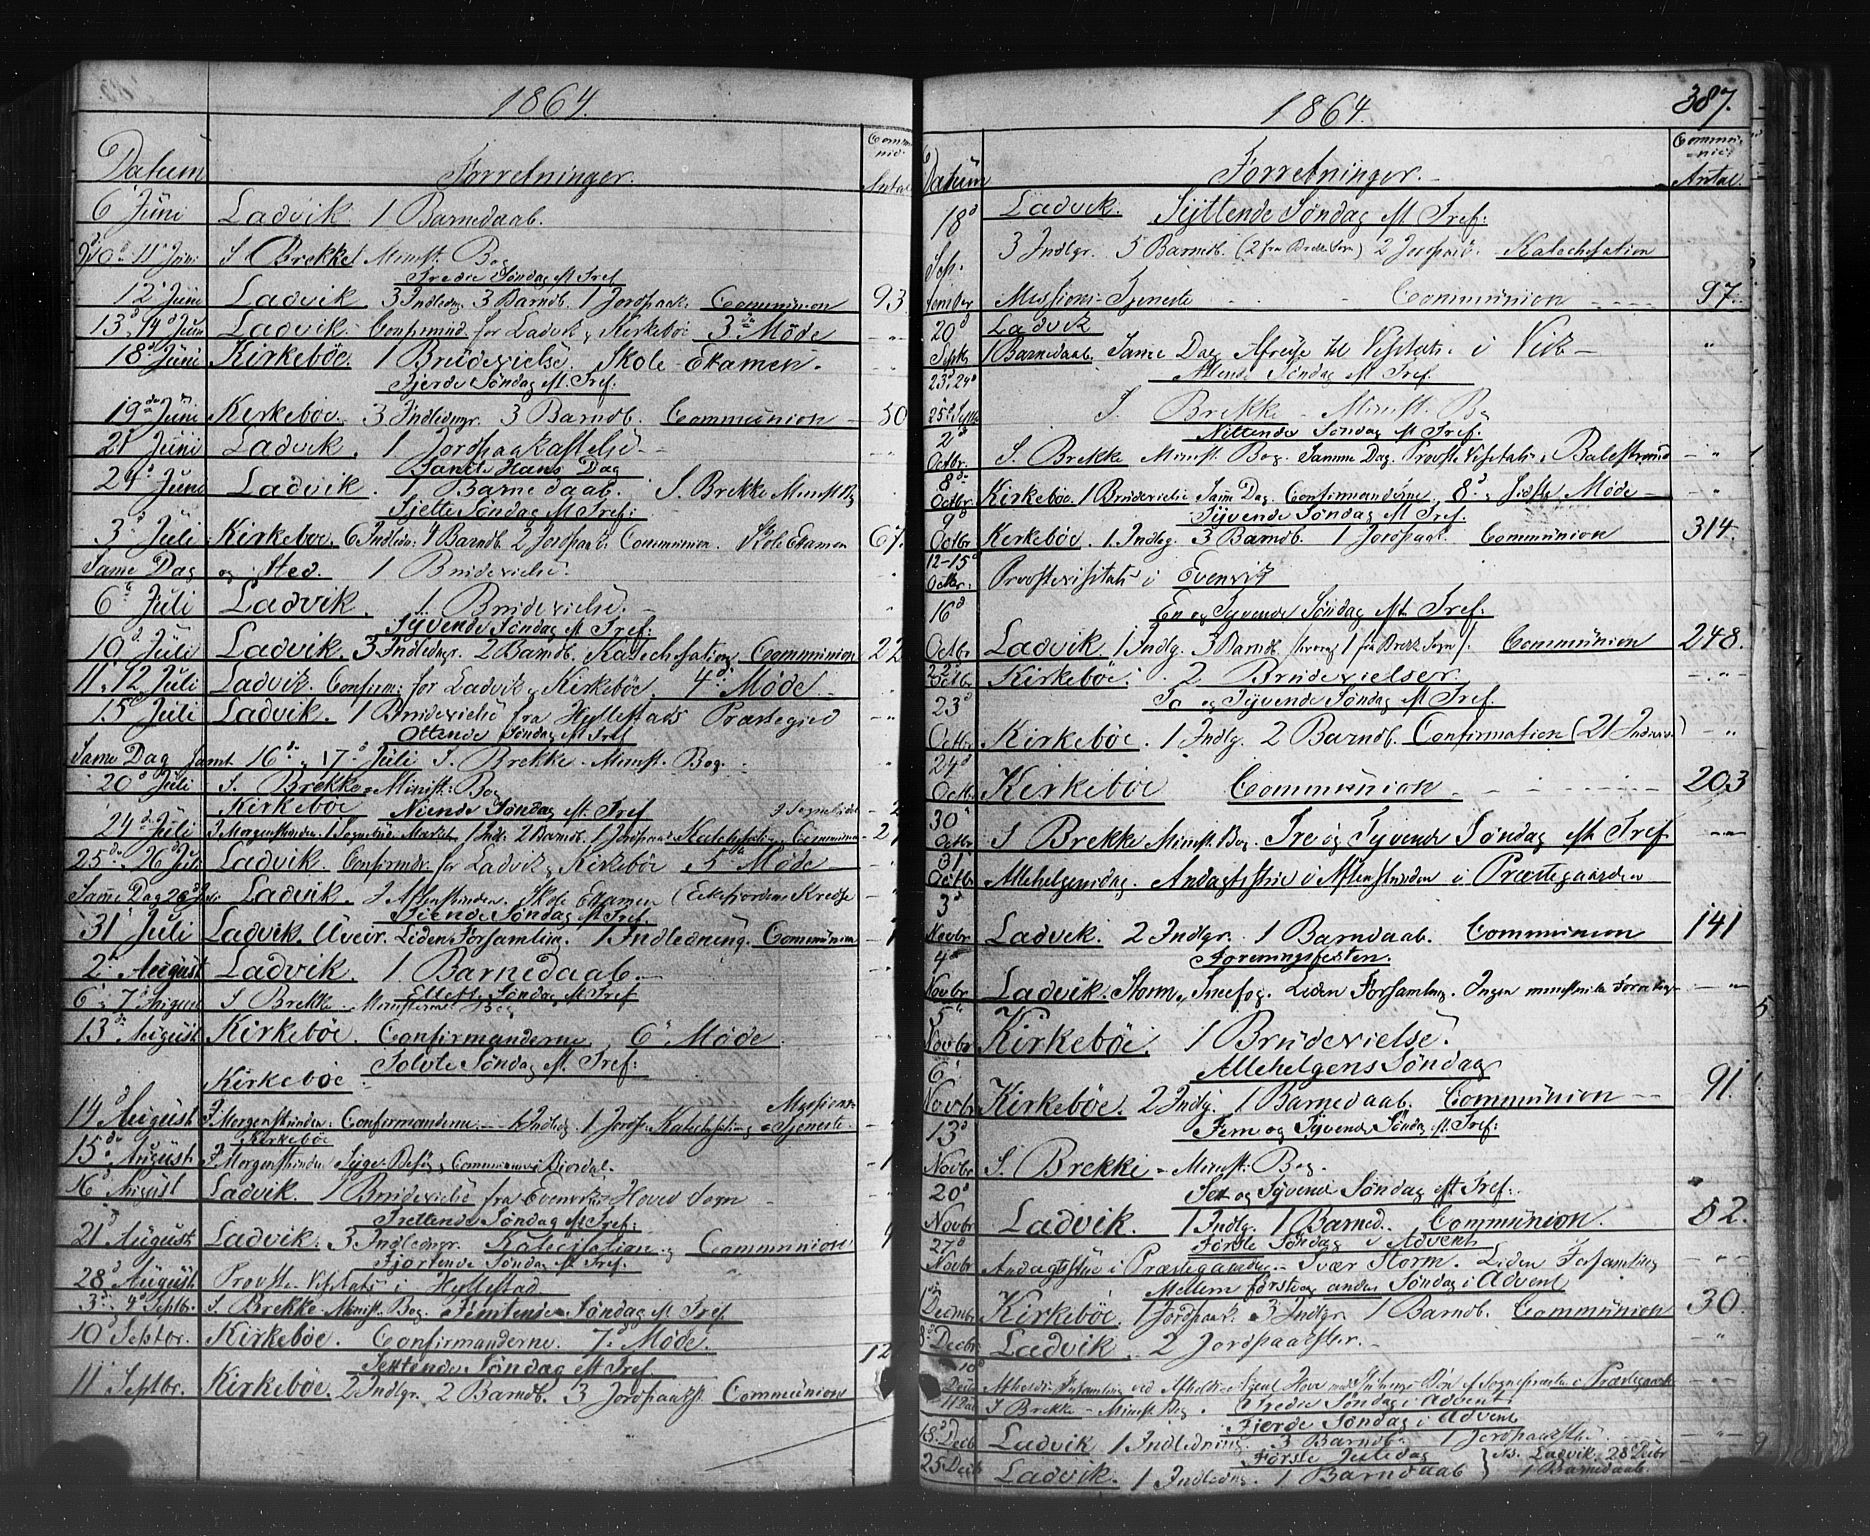 1864.
Datum
Forretninger.
Antal
6 Juni Ladvik. 1 Barnedaab.
11 Juni S. Brekke Minist. Bog
Tredie Søndag eft Tref
12 Juni Ladvik. 3 Indledng. 3 Barndb. 1 Jordpaak. Communion 93.
13 14 Juni Ladvik. Confirmd. for Ladvik og Kirkebøe 3die Møde
18 Juni Kirkebøe. 1 Brudevielse. Skole-Examen.
Fjerde Søndag eft Tref.
19 Juni Kirkebøe. 3 Indledngr. 3 Barndb. Communion 50
21 Juni Ladvik. 1 Jordpaakastelse
Sancte Hans Dag
24 Juni Ladvik. 1 Barnedaab. S. Brekke Minist Bog
Sjette Søndag eft Tref:
3 Juli Kirkeboe. 6 Indledn. 4 Barndb. 2 Jordpaak. Communion. Skole Examen 67.
Same Dag og Sted. 1 Brudevielse.
6 Juli Ladvik. 1 Brudevielse.
Syvende Søndag eft Tref:
10 Juli Ladvik. 3 Indledngr. 2 Barndb. Katechesation Communion 22
11. 12 Juli Ladvik. Confirm: for Ladvik og Kirkebøe. 4d Møde
15 Juli Ladvik. 1 Brudevielse fra Hyllestads Præstegied
Ottende Søndag eft Tref
Same Dag samt 16 17 Juli S. Brekke Minist. Bog
20 Juli S. Brekke Minist: Bog
Kirkebøe Niende Søndag eft Tref
24 Juli 1 Indl. 2 Barndb. 1 Jordpaak. Katechesation Communion
25 26 Juli Ladvik. Confirmdr. for Ladvik og Kirkebøe 5 Møde
Same Dag 26 Juli Ladvik. I Aftenstunden. Skole Examen
Tiende Søndag eft Tref
31 Juli Ladvik. Uveir. Liden Forsamling. 1 Indledning. Communion
2 August Ladvik. 1 Barnedaab.
Ellefte Søndag eft Tref
6 7 August S. Brekke. Bog
13 August Kirkebøe. Confirmanderne 6 Møde
Tolvte Søndag eft Tref:
Kirkebøe
Missions-
14 August I Morgenstunden. Confirmanderne. Indledg. 1 Jordp. Katechesation og Tjeneste
Kirkebøe
15 August I Morgenstunden Communion i Bjordal.
16 August Ladvik. 1 Brudevielse fra Evenviks Hoved Sogn
Trettende Søndag eft Tref:
21 August Ladvik. 3 Indledngr. Katecisation og Communion
Fjortende Søndag eft Tref.
28 August Provste Visitats i Hyllestad
3 4 Septbr. S. Brekke Minist. Bog Femtende Søndag eft Tref
10 Septbr. Kirkebøe. Confirmanderne. 7 Møde.
Sextende Søndag eft Tref. 12
11 Septbr. Kirkebøe. 2 Indlgr. 2 Barndb. 3 Jordpaakst. Communion
1864. 387.
Datum
Forretninger.
Antal.
18 September Ladvik. Syttende Søndag eft Tref:
3 Indlgr. 5 Barndb. 2 Jordpaak. Katechesation
Missions-Tjeneste Communion 97.
20 Septb Ladvik
1 Barnedaab. Same Dag Afreise til Visitats i Vik
23 24 Attende Søndag eft Tref.
25 Septb S. Brekke Minist. Bog
Nittende Søndag eft Tref:
2 Octbr. S. Brekke Minist. Bog. Samme Dag. Provste Visitats i Balestrand
8 Octbr. Kirkebøe. 1 Brudevielse Same Dag. Confirmanderne 8 og sidste Møde
Tyvende Søndag eft Tref.
9 Octbr Kirkebøe. 1 Indlg. 3 Barndb. 1 Jordpaak. Communion 314.
12-15 Octbr. Provstevisitats i Evenvik
16 En og Tyvende Søndag eft Tref:
Octbr. Ladvik 1 Indlg. 3 Barndb. Communion 248.
22 Octbr. Kirkebøe. 2 Brudevielser
To og Tyvende Søndag eft Tref.
23 Octbr Kirkebøe. 1 Indlg. 2 Barndb. Confirmation (21 Individ)
24 Octbr Kirkebøe Communion 203
30 Octbr S Brekke Minist. Bog. Tre og Tyvende Søndag eft Tref
31 Octbr Allehelgensdag. Andagtstime i Aftenstunden i Præstegaarden
3 Novbr Ladvik. 2 Indlgr. 1 Barndaab. Communion 141
Foreningsfesten.
4 Novbr Ladvik. Storm og Sneefog. Liden Forsamling. Ingen ministerielle Forretng.
5 Novbr Kirkebøe. 1 Brudevielse.
Allehelgens Søndag
6 Novbr Kirkebøe. 2 Indlg. 1 Barnedaab. Communion 91.
Fem og Tyvende Søndag eft Tref:
13 Novbr S. Brekke Minist. Bog.
Sex og Tyvende Søndag eft Tref:
20 Novbr Ladvik. 1 Indlg. 1 Barned. Communion. 52.
Første Søndag i Advent
27 Novbr Andagtsstue i Præstegaarden Svær Storm. Liden Forsamling
Mellem første og anden Søndag i Advent
1 Decmbr Kirkebøe. 1 Jordpaak. 3 Indlgr. 1 Barndb. Communion 30.
8 Decbr Ladvik. 2 Jordpaakster.
10
11 Dec S Brekke Minist Bog Tredie Søndag i Advent
Fjerde Søndag i Advent
18 Decb Ladvik 1 Indledning. 3 Barndb. 1 Jordpaakst
Første Juledag
25 Decb Ladvik. 1 Indledng. 1 Barndaab } NB. Ladvik 28 Decbr 1 Barnedaab.